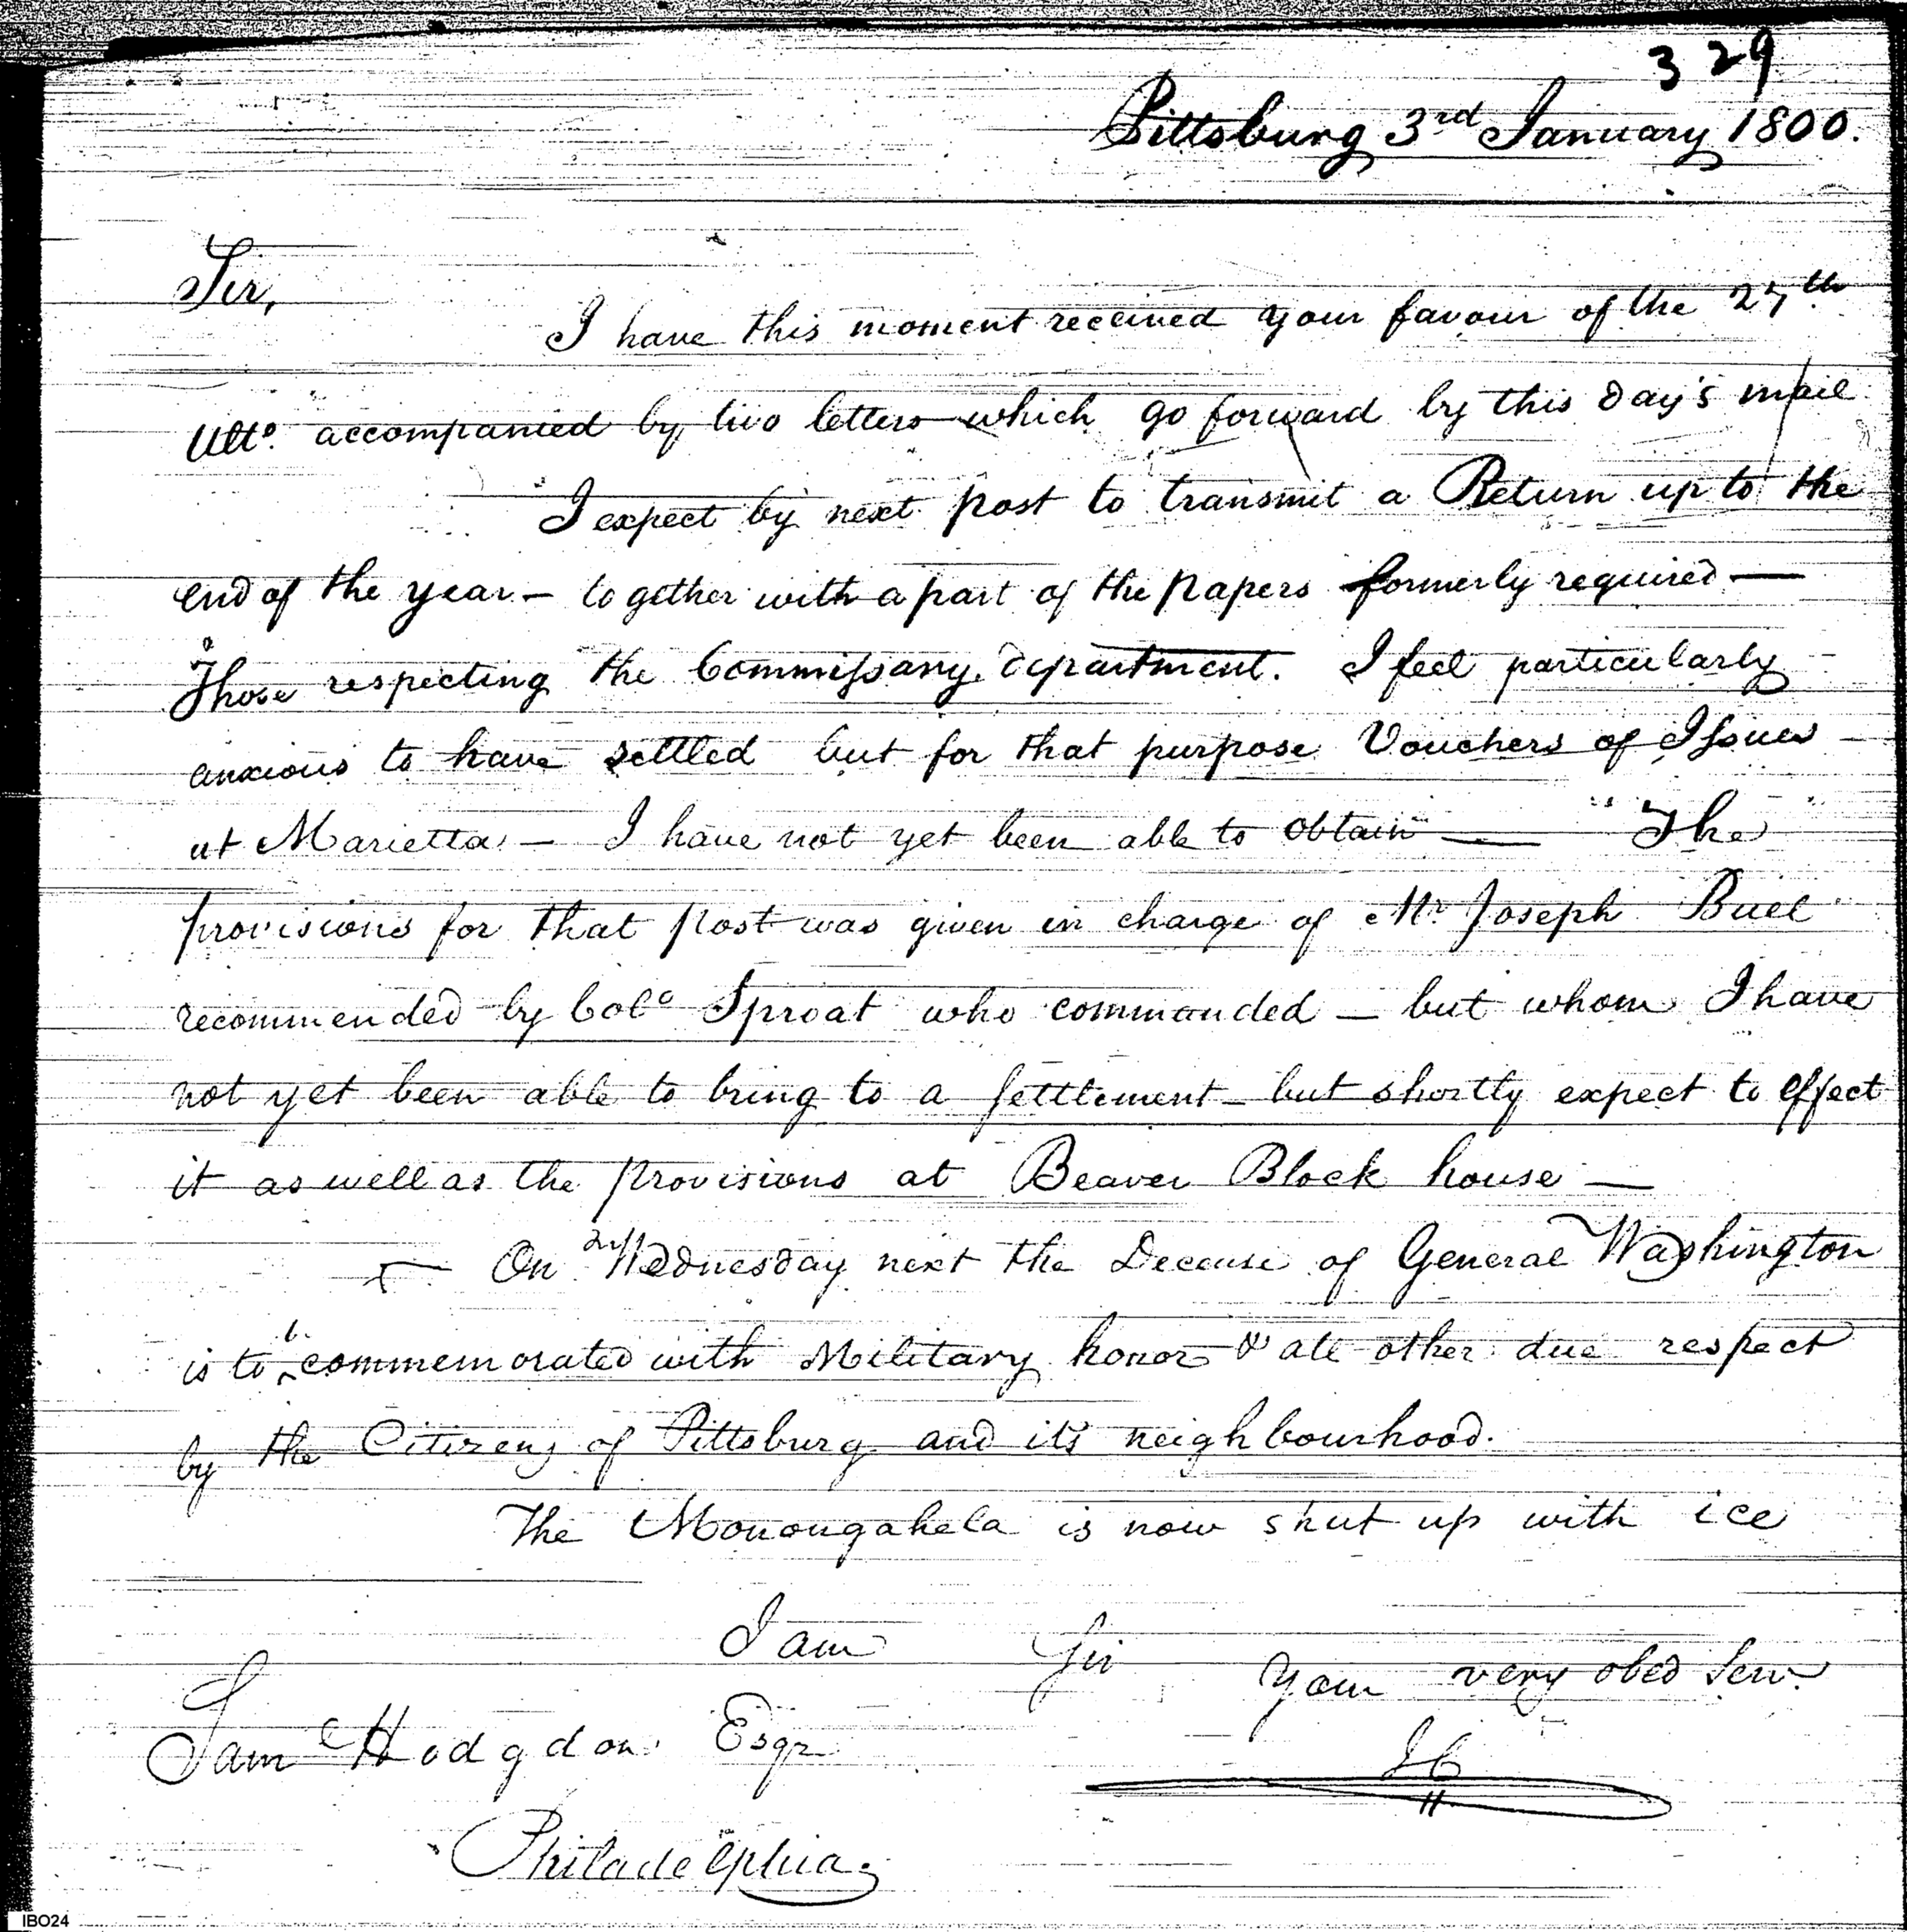 329
Pittsburg 3rd January 1800.
Sir,
I have this moment received your favour of the 27th
Ulto. accompanied by two letters which go forward by this day's mail
I expect by next post to transmit a Return up to the
end of the year — together with a part of the papers formerly required —
Those respecting the Commissary department. I feel particularly
anxious to have settled but for that purpose Vouchers of Issues
at Marietta — I have not yet been able to obtain — The
provisions for that post was given in charge of Mr. Joseph Buel
recommended by Colo Sproat who commanded — but whom I have
not yet been able to bring to a settlement — but shortly expect to effect
it as well as the provisions at Beaver Block house —
On Wednesday next the Decease of General Washington
is to b. commemorated with Military honor & all other due respect
by the Citizens of Pittsburg and it's neighbourhood.
The Monongahela is now shut up with ice
I am Sir
Your very obed Serv
Saml Hodgdon Esqr
Philadelphia
IBO24